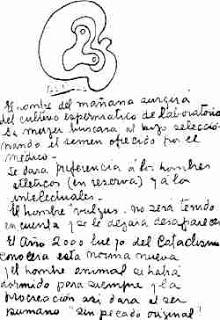 El hombre del mañana surgirá
del cultivo espermatico de laboratorio
La mujer buscara al hijo seleccio
nando el semen ofrecido por el
medico.
Se dara preferencia á los hombres
atleticos (en reserva) y á los
intelectuales.
El hombre "vulgus" no será tenido
en cuenta y se le dejara desaparecer
El Año 2000 luego del Cataclismo
conocera esta norma nueva
y el hombre animal se habrá
dormido para siempre y la
procreacion asi dara el ser
humano "sin pecado original"